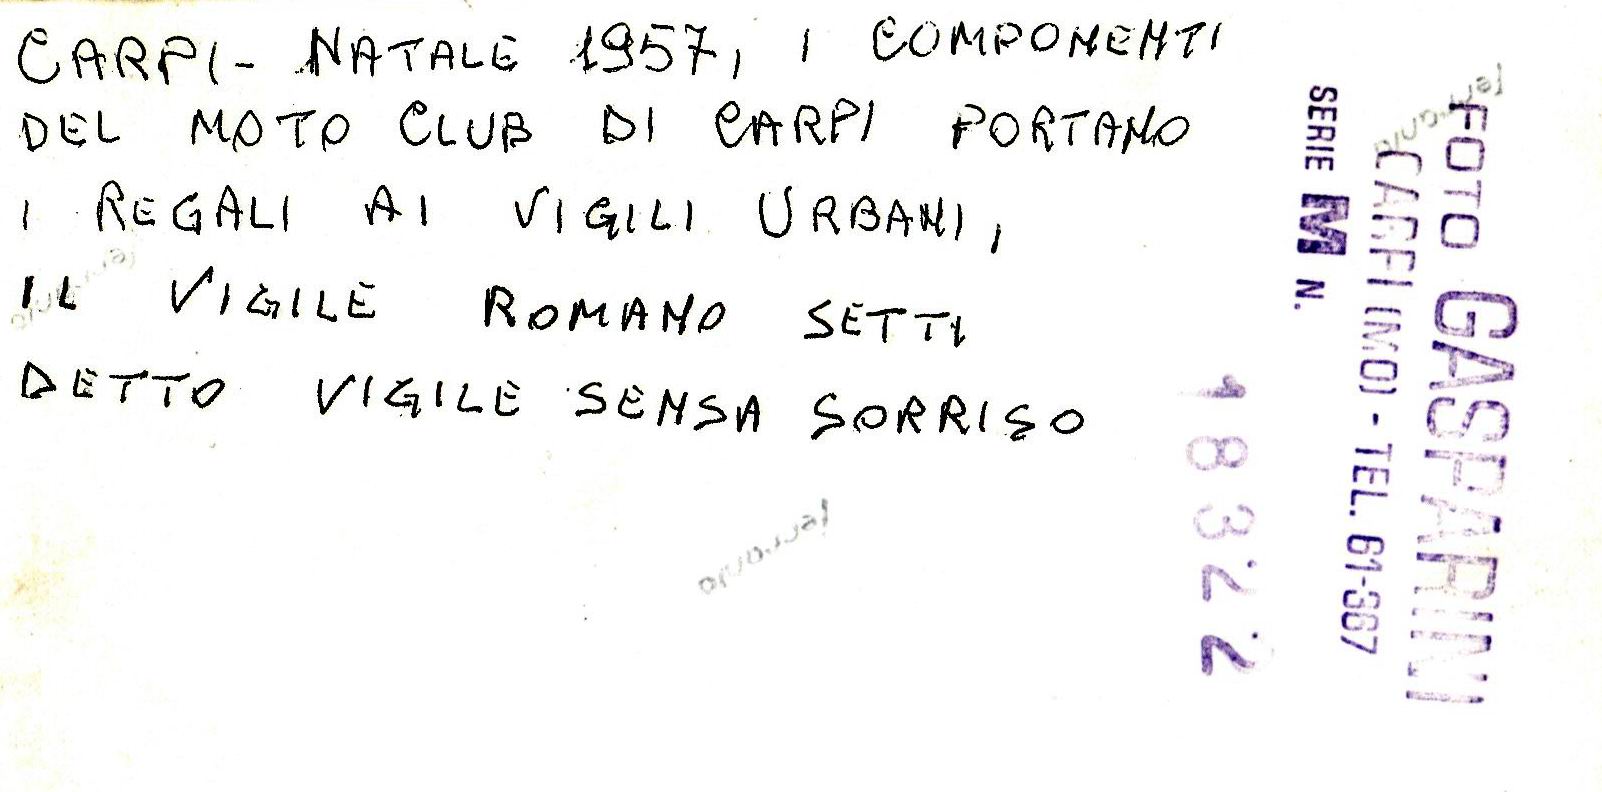 CARPI- NATALE 1957, I COMPONENTI
DEL MOTO CLUB DI CARPI PORTANO
I REGALI AI VIGILI URBANI,
IL VIGILE ROMANO SETTI
DETTO VIGILE SENSA SORRISO
FOTO GASPARINI
CARPI (MO) - TEL. 61-387
SERIE M N.
18322